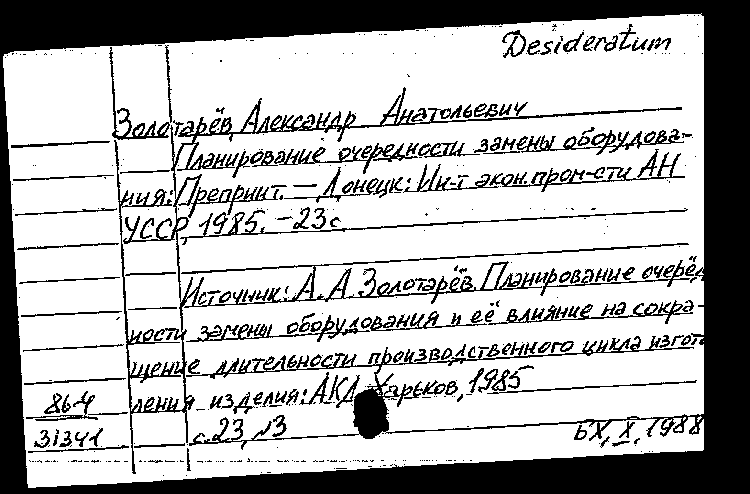 Desideratum
Золотарёв, Александр Анатольевич
Планирование очередности замены оборудова-
ния: Препринт. — Донецк: Ин-т экон. пром-сти АН
УССР, 1985. - 23 с.
Источник: А. А. Золотарёв Планирование очерёд
ности замены оборудования и её влияние на сокра-
щение длительности производственного цикла изгот
ления изделия: АКД Харьков, 1985
с. 23, №3
86-4
31341
БХ, X, 1988